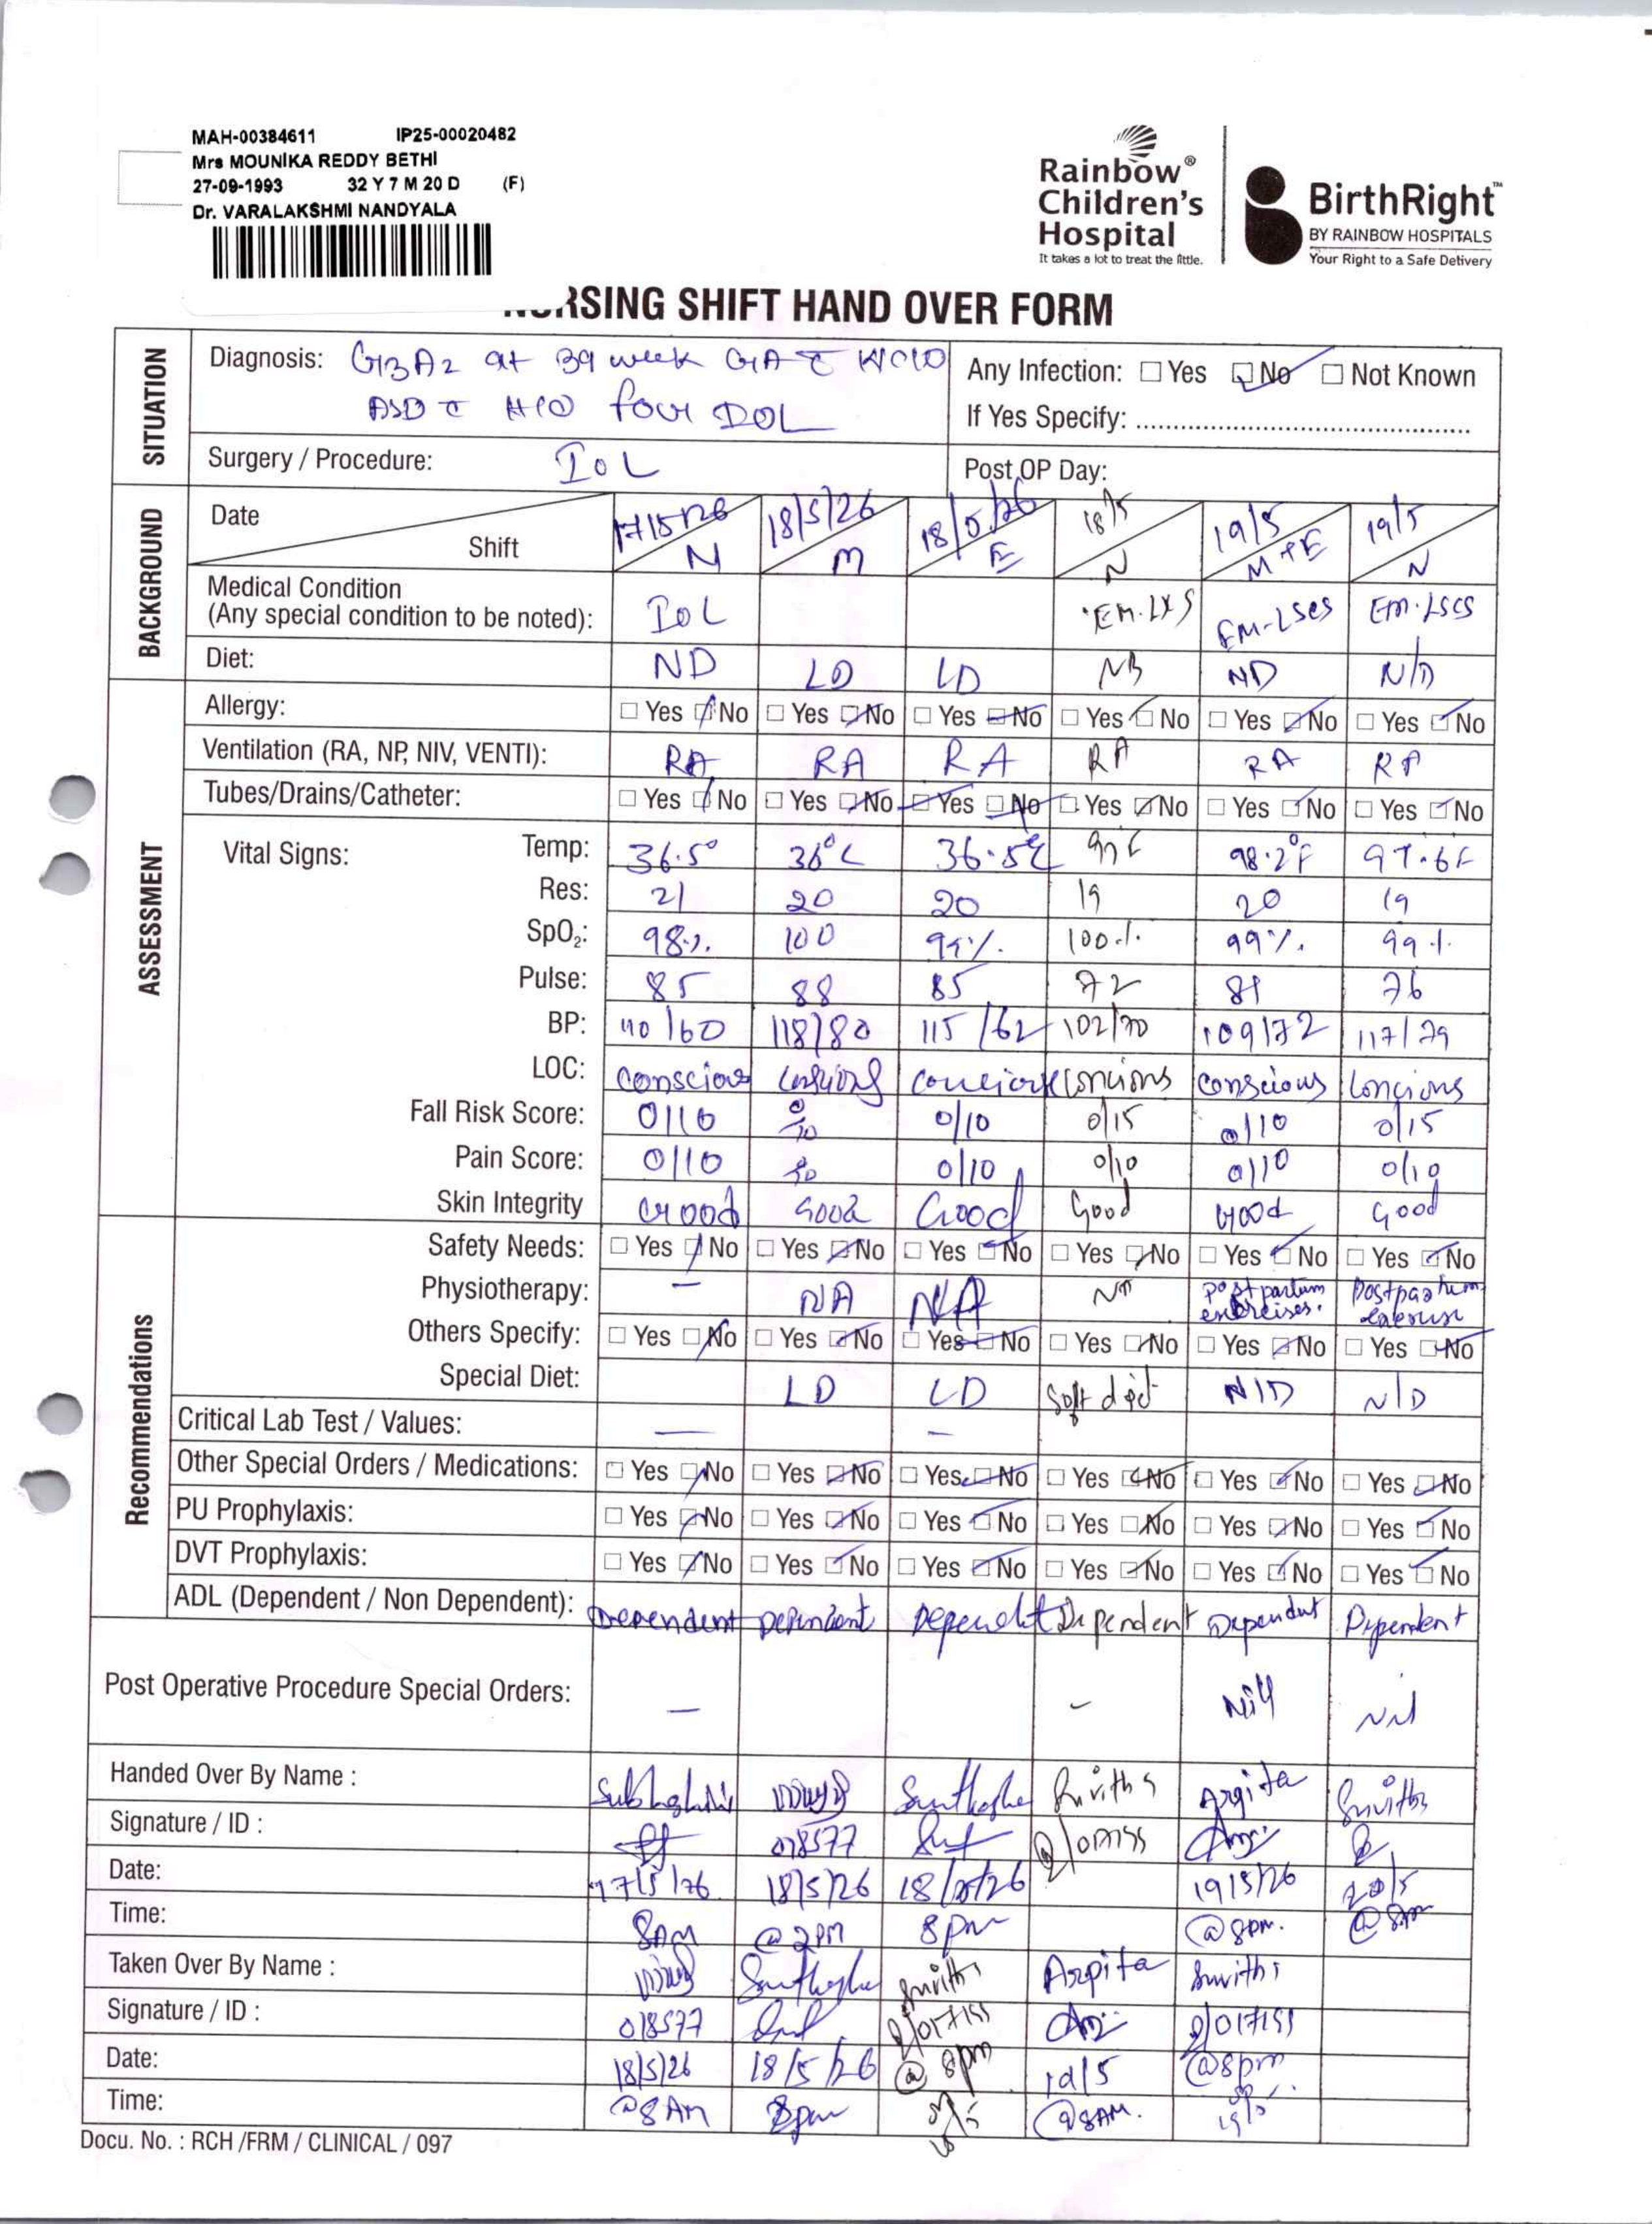 MAH-00384611 IP25-00020482
Mrs MOUNIKA REDDY BETHI
27-09-1993 32 Y 7 M 20 D (F)
Dr. VARALAKSHMI NANDYALA
Rainbow® Children's Hospital
It takes a lot to treat the little.
BirthRight™
BY RAINBOW HOSPITALS
Your Right to a Safe Delivery
SHIFT HAND OVER FORM
SITUATION
Diagnosis: G3A2 at 39 week GA c
ASD c H/O four DOL
Any Infection: Yes No Not Known
If Yes Specify:
Surgery / Procedure: IOL
Post OP Day:
BACKGROUND
Date 17/5/26 18/5/26 18/5/26 18/5 19/5 19/5
Shift N M E N M+E N
Medical Condition
(Any special condition to be noted): IOL EM-LSCS EM.LSCS
Diet: ND LD LD ND N/D
ASSESSMENT
Allergy: Yes No Yes No Yes No Yes No Yes No Yes No
Ventilation (RA, NP, NIV, VENTI): RA RA RA RA RA RA
Tubes/Drains/Catheter: Yes No Yes No Yes No Yes No Yes No Yes No
Vital Signs:
Temp: 36.5° 36°C 36.5°C 98.2°F 97.6F
Res: 21 20 20 19 20 19
SpO2: 98% 100 99% 100% 99% 99%
Pulse: 85 88 85 72 76
BP: 110/60 118/80 115/62 102/70 109/72 117/79
LOC: conscious conscious
Fall Risk Score: 0/10 0/10 0/10 0/15 0/10 0/15
Pain Score: 0/10 0/10 0/10 0/10 0/10
Skin Integrity Good Good Good Good Good Good
Recommendations
Safety Needs: Yes No Yes No Yes No Yes No Yes No Yes No
Physiotherapy: – NA NA NA postpartum exercises. postpartum
Others Specify: Yes No Yes No Yes No Yes No Yes No Yes No
Special Diet: LD LD Soft diet N/D N/D
Critical Lab Test / Values: — –
Other Special Orders / Medications: Yes No Yes No Yes No Yes No Yes No Yes No
PU Prophylaxis: Yes No Yes No Yes No Yes No Yes No Yes No
DVT Prophylaxis: Yes No Yes No Yes No Yes No Yes No Yes No
ADL (Dependent / Non Dependent): Dependent Dependent
Post Operative Procedure Special Orders: — – Nill Nil
Handed Over By Name : Arpita
Signature / ID : 018577
Date: 17/5/26 18/5/26 18/5/26 19/5/26 20/5
Time: 8AM @ 2PM 8pm @ 8pm. @ 8am
Taken Over By Name : Arpita
Signature / ID : 018577
Date: 18/5/26 18/5/26 @ 8pm 19/5 @8pm
Time: @8AM 8pm 18/5 @8AM. 19/5
Docu. No. : RCH /FRM / CLINICAL / 097